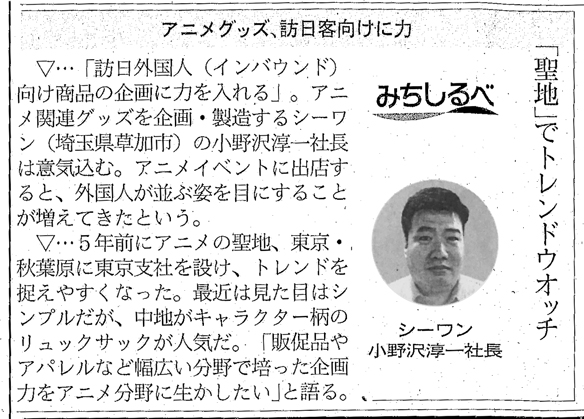 アニメグッズ、訪日客向けに力
「聖地」でトレンドウオッチ
みちしるべ
▽…「訪日外国人（インバウンド）
向け商品の企画に力を入れる」。アニ
メ関連グッズを企画・製造するシーワ
ン（埼玉県草加市）の小野沢淳一社長
は意気込む。アニメイベントに出店す
ると、外国人が並ぶ姿を目にすること
が増えてきたという。
▽…５年前にアニメの聖地、東京・
秋葉原に東京支社を設け、トレンドを
捉えやすくなった。最近は見た目はシ
ンプルだが、中地がキャラクター柄の
リュックサックが人気だ。「販促品や
アパレルなど幅広い分野で培った企画
力をアニメ分野に生かしたい」と語る。
シーワン
小野沢淳一社長